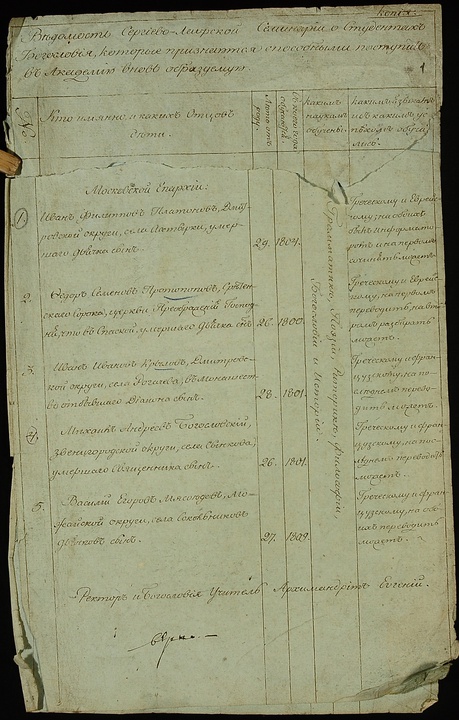 копія.
Вѣдомость Сергіево-Лаврской Семинаріи о Студентахъ
Богословія, которые признаются способными поступить
въ Академію вновь образуемую.
1
№
Кто имянно и какихъ отцовъ
дѣти.
Лѣта отъ
роду.
Какимъ
наукамъ
обучены.
Какимъ языкамъ
и съ какимъ ус-
пѣхомъ обуча-
лись.
Московской Епархіи:
1. Иванъ Филиповъ Платоновъ, Дмит-
ровской округи, села Ахтырки, умер-
шаго дьячка сынъ.
29. 1804.
Греческому и Еврей-
скому, на обоихъ
и на первомъ
сочинять можетъ.
Грамматикѣ, Поэзіи, Риторикѣ, Философіи,
Богословіи и Исторіи.
2. Ѳедоръ Семеновъ Протопоповъ, Срѣтен-
скаго Сорока, церкви Преображенія Господ-
ня, что въ Спаской, умершаго дьячка сынъ
26. 1800.
Греческому и Еврей-
скому, на первомъ
переводить, на вто-
ромъ разбирать
можетъ.
3. Иванъ Ивановъ Дмитров-
ской округи, села Рогачева, въ монашест-
во отъ Діакона сынъ.
28. 1801.
Греческому и фран-
цузскому, на по-
слѣднемъ перево-
дить можетъ.
4. Михаилъ Андреевъ Богословскій,
Звенигородской округи, села
умершаго Священника сынъ.
26. 1801.
Греческому и фран-
цузскому, на пос-
лѣднемъ переводить
можетъ.
5. Василій Егоровъ Мясоѣдовъ, Мо-
жайской округи, села
дьячковъ сынъ.
27. 1809.
Греческому и фран-
цузскому, на обо-
ихъ переводить
можетъ.
Ректоръ и Богословія Учитель Архимандритъ Евгеній.